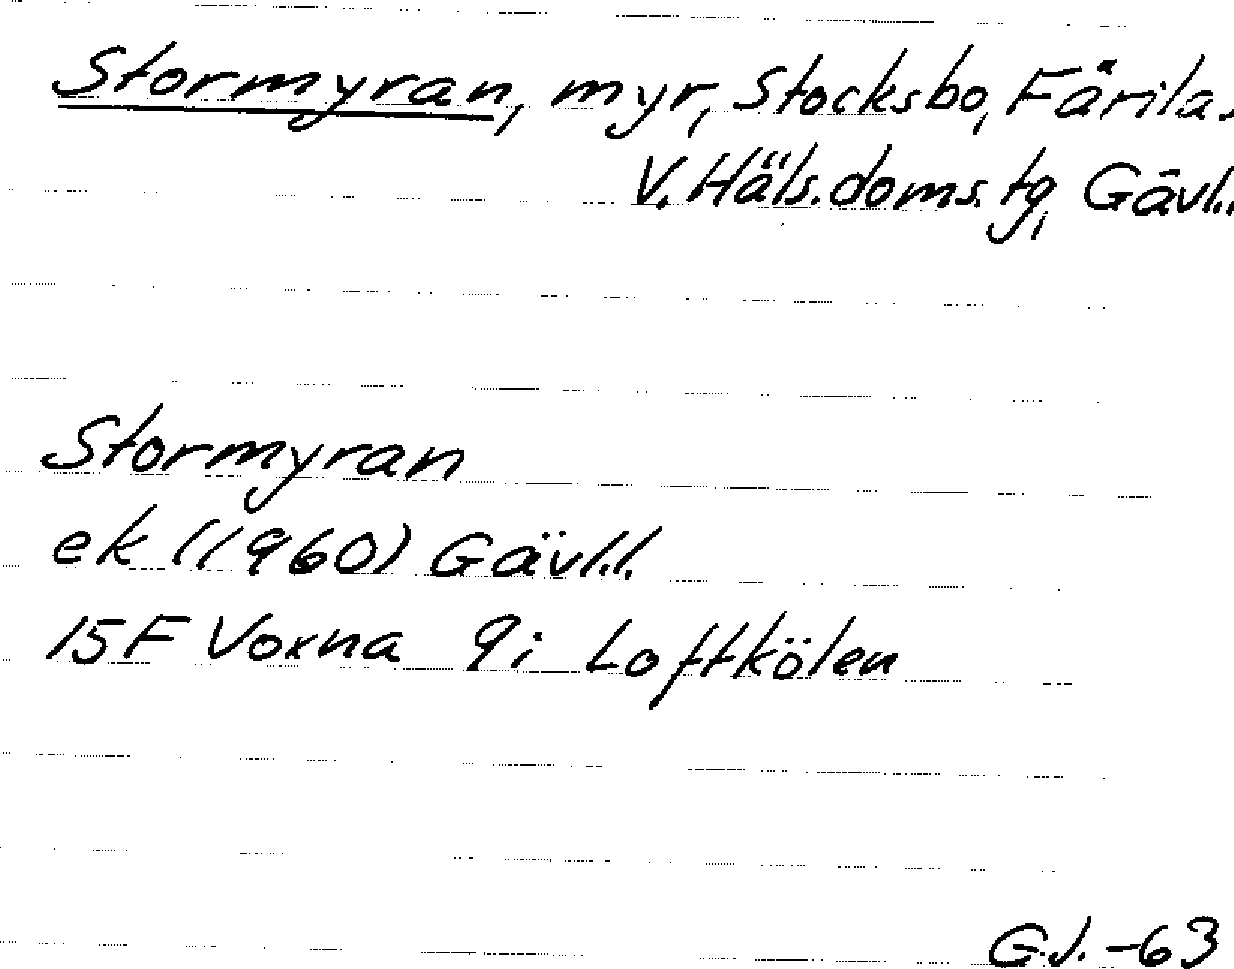 Stormyran, myr, Stocksbo, Färila s
V. Häls. doms. tg, Gävl. l.
Stormyran
ek (1960) Gävl. l.
15F Voxna 9i Loftkölen
G.J. -63